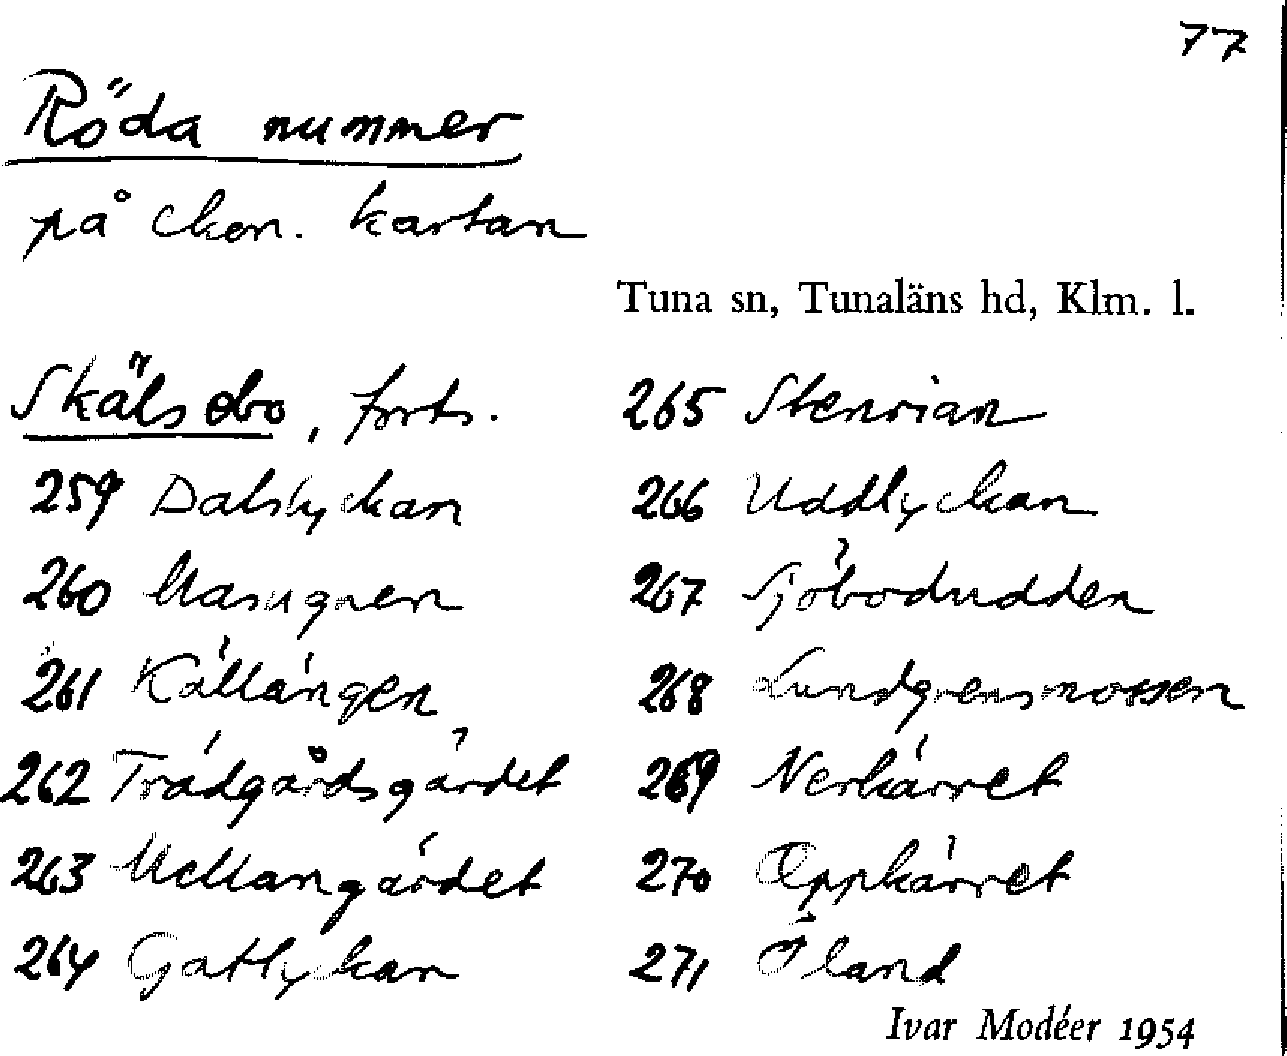 77
Röda nummer
på eken. kartan
Tuna sn, Tunaläns hd, Klm. l.
Skälsebo, forts.
259 Dalslyckan
260 Masugnen
261 Källängen
262 Trädgårdsgärdet
263 Mellangärdet
264 Gatlyckan
265 Stenrian
266 Uddlyckan
267 Sjöbodudden
268 Lundgrensmossen
269 Nerkärret
270 Oppkärret
271 Öland
Ivar Modéer 1954